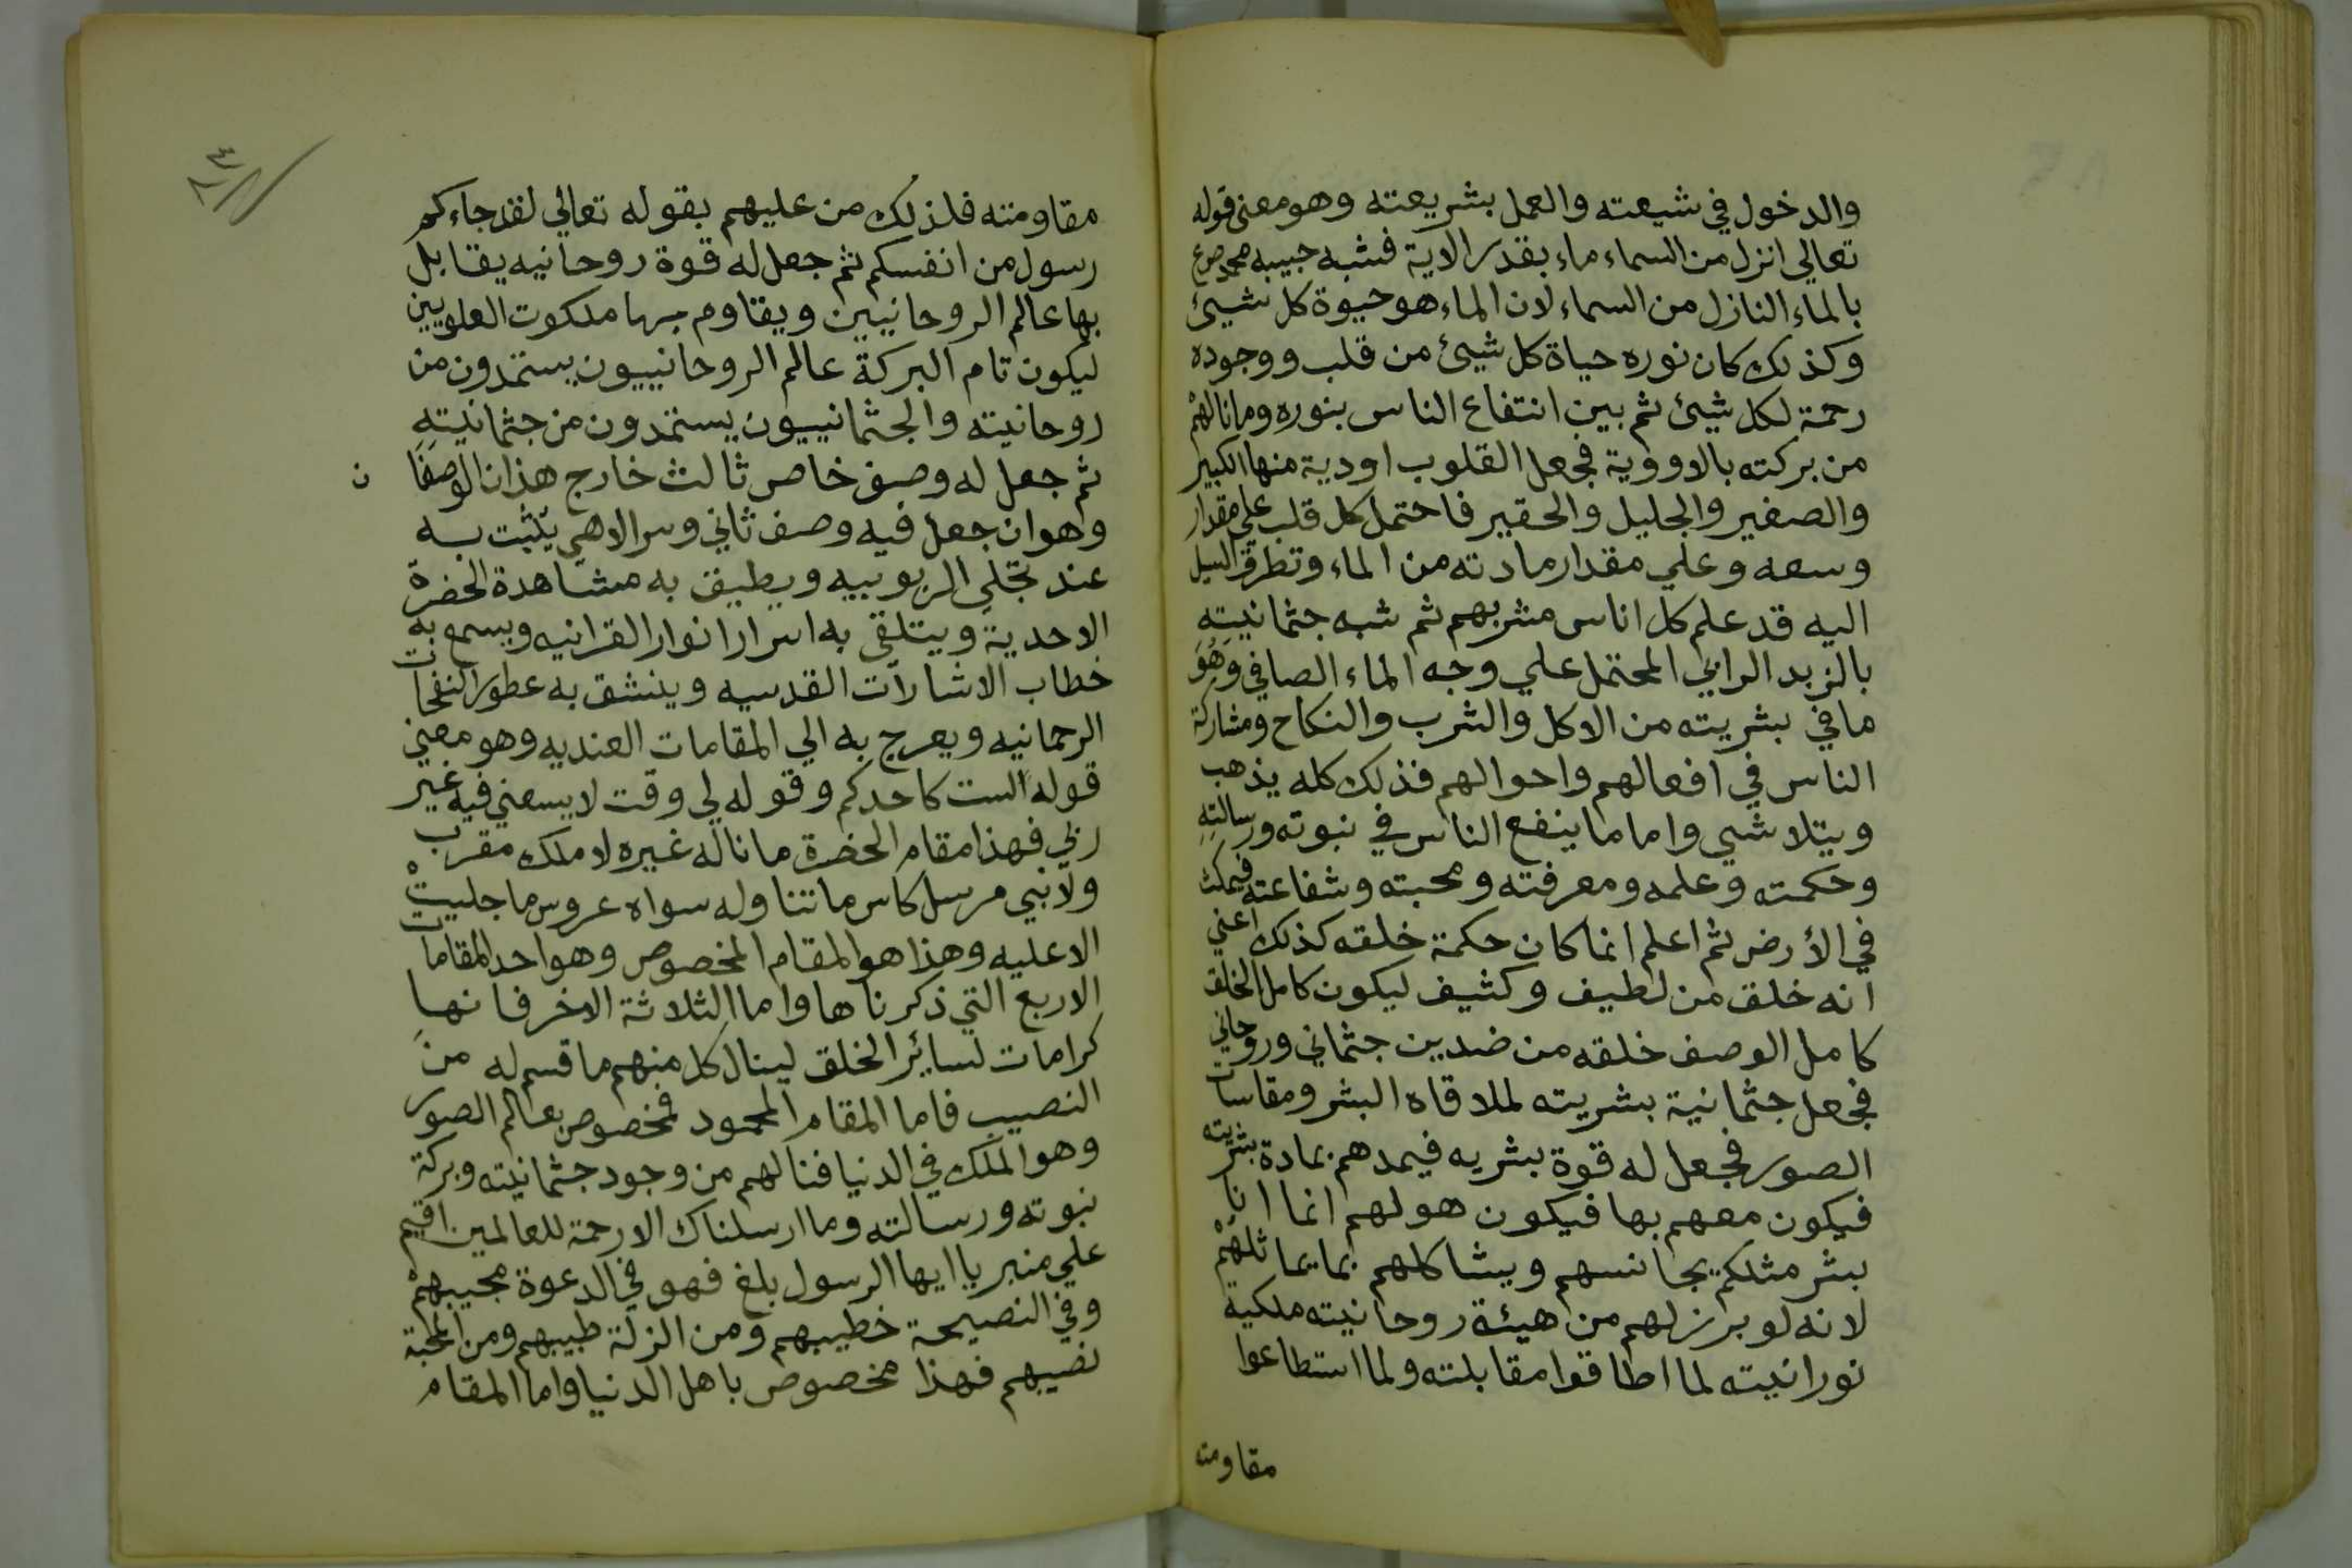 والدخول في شيعته والعمل بشريعته وهو معنى قوله
تعالي انزل من السماء ماء بقدر الاية فشبه حبيبه محمد صلع
بالماء النازل من السماء لان الماء هو حيوة كل شيئ
وكذلك كان نوره حياة كل شيئ من قلب ووجوده
رحمة لكل شيئ ثم بين انتفاع الناس بنوره وما نالهم
من بركته بالاووية فجعل القلوب اودية منها الكبير
والصغير والجليل والحقير فاحتمل كل قلب علي مقدار
وسعه وعلي مقدار مادته من الماء وتطرق السيل
اليه قد علم كل اناس مشربهم ثم شبه جثمانيته
بالزبد الرابي المحتمل علي وجه الماء الصافي وهو
ما في بشريته من الاكل والشرب والنكاح ومشاركة
الناس في افعالهم واحوالهم فذلك كله يذهب
ويتلاشي واما ما ينفع الناس في نبوته ورسالته
وحكمته وعلمه ومعرفته ومحبته وشفاعته فيمكث
في الأرض ثم اعلم انما كان حكمة خلقه كذلك اعني
انه خلق من لطيف وكثيف ليكون كامل الخلق
كامل الوصف خلقه من ضدين جثماني وروحاني
فجعل جثمانية بشريته لملاقاه البشر ومقاسات
الصور فجعل له قوة بشريه فيمدهم بمادة بشريته
فيكون معهم بها فيكون هو لهم انما انا
بشر مثلكم يجانسهم ويشاكلهم بما يماثلهم
لانه لو برز لهم من هيئة روحانيته ملكية
نورانيته لما اطاقوا مقابلته ولما استطاعوا
مقاومته
مقاومته فلذلك من عليهم بقوله تعالي لقد جاءكم
رسول من انفسكم ثم جعل له قوة روحانيه يقابل
بها عالم الروحانيين ويقاوم بها ملكوت العلويين
ليكون تام البركة عالم الروحانييون يستمدون من
روحانيته والجثمانييون يستمدون من جثمانيته
ثم جعل له وصف خاص ثالث خارج هذان الوصفا
ن
وهو ان جعل فيه وصف ثاني وسر الاهي يثبت به
عند تجلي الربوبيه ويطيق به مشاهدة الحضرة
الاحدية ويتلقي به اسرار انوار القرانيه ويسمع به
خطاب الاشارات القدسيه وينشق به عطور النفحات
الرحمانيه ويعرج به الي المقامات العنديه وهو معني
قوله الست كاحدكم وقوله لي وقت لا يسعني فيه غير
ربي فهذا مقام الحضرة ما ناله غيره لا ملك مقرب
ولا نبي مرسل كاس ما تناوله سواه عروس ما جليت
الا عليه وهذا هو المقام المخصوص وهو احد المقامات
الاربع التي ذكرناها واما الثلاثة الاخر فانها
كرامات لسائر الخلق لينال كل منهم ما قسم له من
النصيب فاما المقام المحمود فمخصوص بعالم الصور
وهو الملك في الدنيا فنالهم من وجود جثمانيته وبركة
نبوته ورسالته وما ارسلناك الا رحمة للعالمين اقيم
علي منبر يا ايها الرسول بلغ فهو في الدعوة مجيبهم
وفي النصيحة خطيبهم ومن الزلة طبيبهم ومن المحبة
نصيبهم فهذا مخصوص باهل الدنيا واما المقام